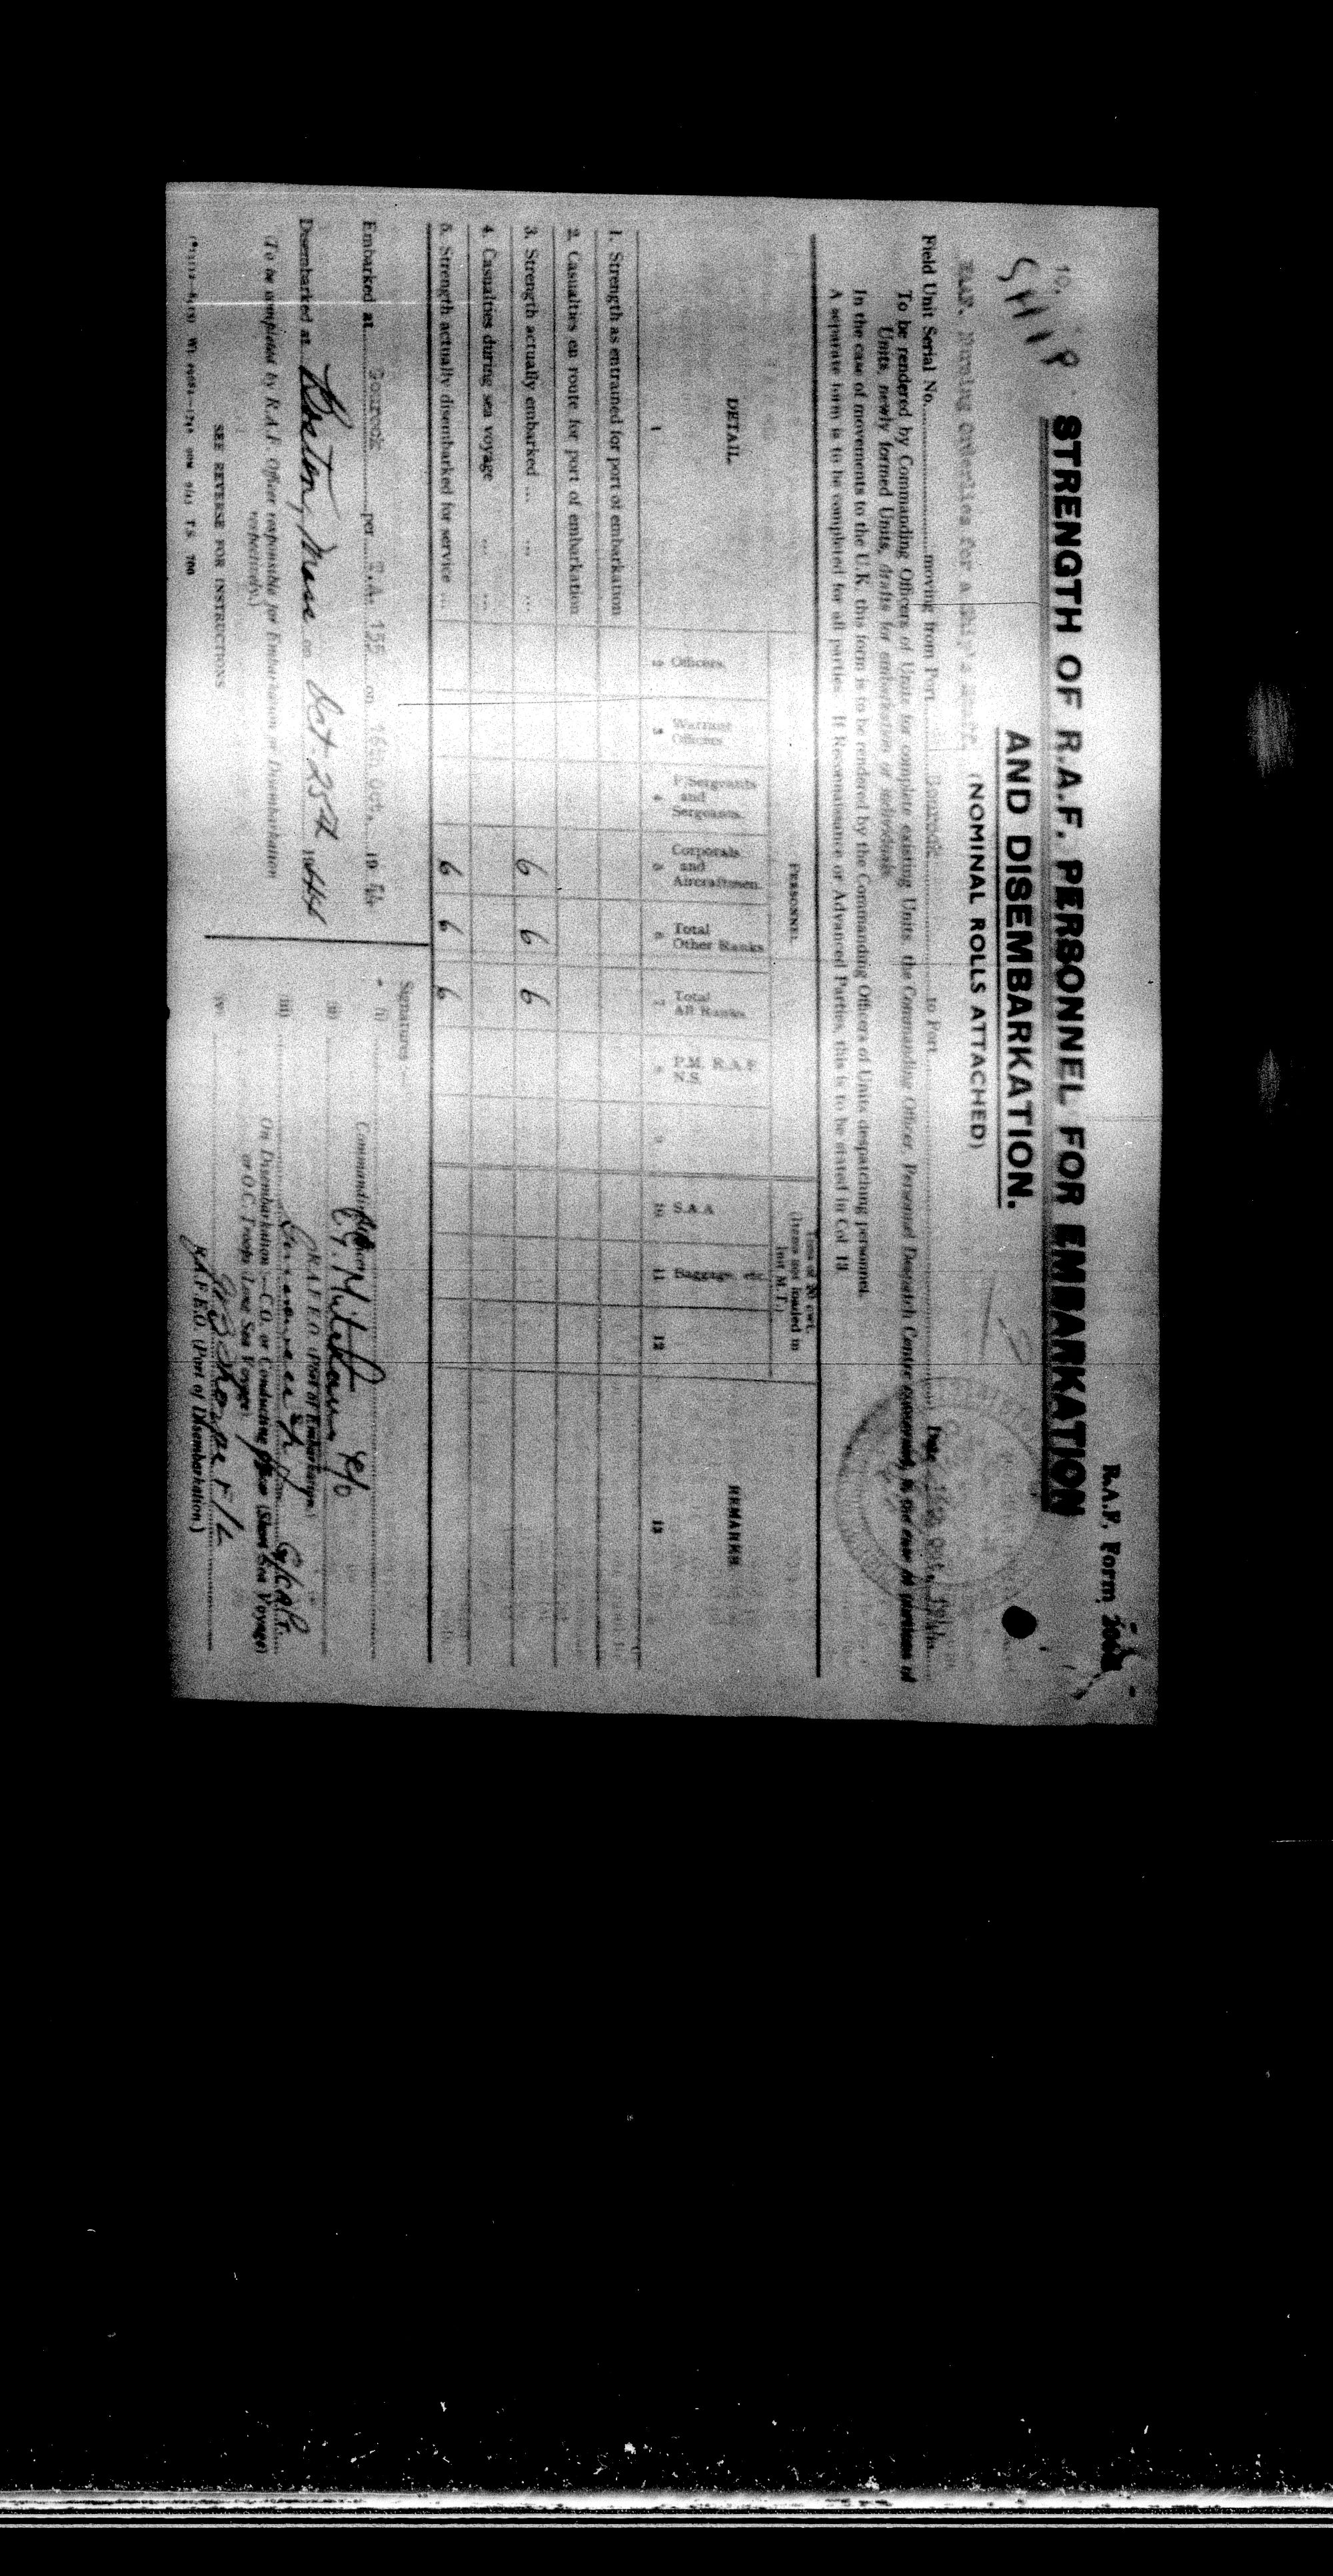 R.A.F. Form
10.
STRENGTH OF R.A.F. PERSONNEL FOR EMBARKATION
SHIP
AND DISEMBARKATION.
(NOMINAL ROLLS ATTACHED)
RAF. Nursing Orderlies for a
Field Unit Serial No. moving from Port Gourock to Port Date
To be rendered by Commanding Officers of Units for complete existing Units, the Commanding Officer, Personnel Despatch Centre concerned, in the case of portions of
Units, newly formed Units, drafts for embarkation or individuals
In the case of movements to the U.K. this form is to be rendered by the Commanding Officers of Units despatching personnel.
A separate form is to be completed for all parties. If Reconnaissance or Advanced Parties, this is to be stated in Col. 13.
PERSONNEL
Tons of 20 cwt. (Items not loaded in Init M.T.)
DETAIL. Officers. Warrant Officers F/Sergeants and Sergeants. Corporals and Aircraftmen. Total Other Ranks Total All Ranks P.M. R.A.F. N.S. S.A.A. Baggage, etc. REMARKS.
1 2 3 4 5 6 7 8 9 10 11 12 13
1. Strength as entrained for port of embarkation
2. Casualties en route for port of embarkation
3. Strength actually embarked ... ... ... 6 6 6
4. Casualties during sea voyage ... ...
5. Strength actually disembarked for service ... 6 6 6
Signatures—
Embarked at Gourock per T.A. 155 on 16th Oct. 19 44
(i) Commanding
(ii)
R.A.F. E.O. (Port of Embarkation)
Disembarked at Boston, Mass on Oct 25th 1944
(iii)
(To be completed by R.A.F. Officer responsible for Embarkation or Disembarkation
respectively.)
On Disembarkation—C.O. or Conducting Officer (Short Sea Voyage)
or O.C. Troops (Long Sea Voyage)
SEE REVERSE FOR INSTRUCTIONS
R.A.F. E.O. (Port of Disembarkation.)